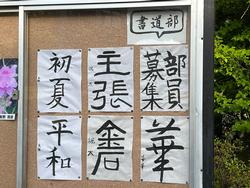 書道部
部員
募集
主張
初夏
華
平和